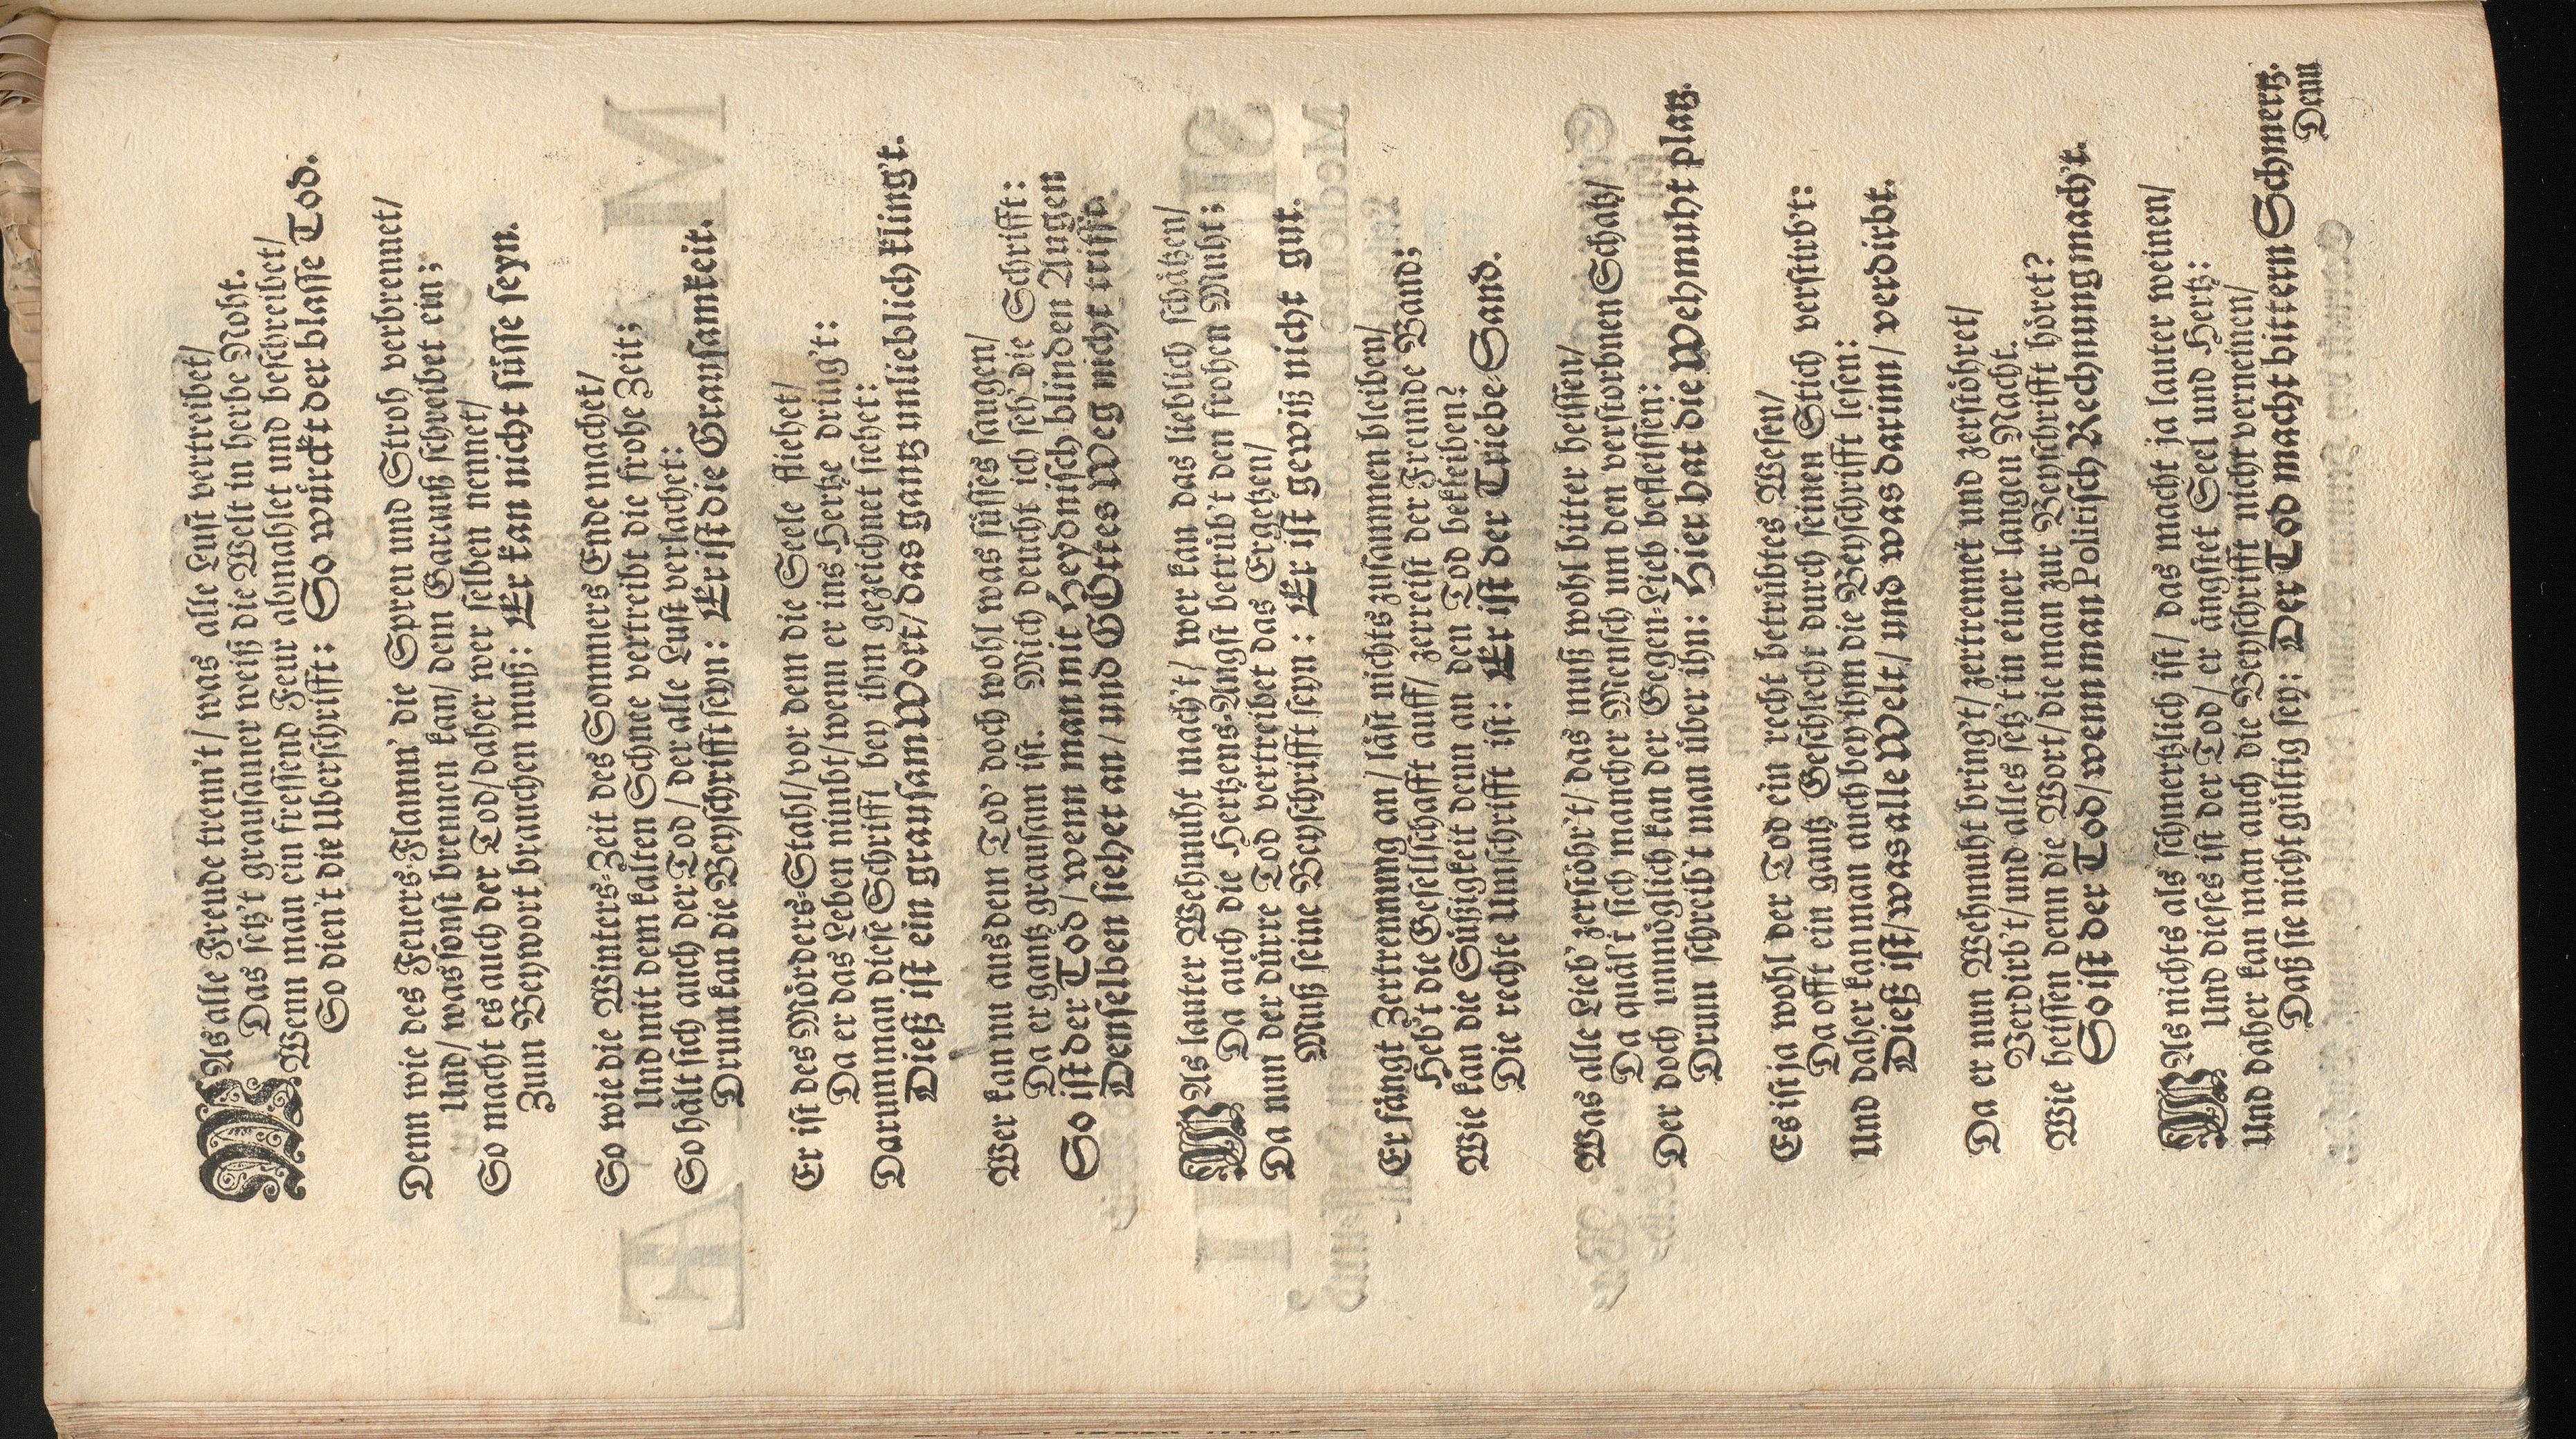 WAs alle Freude trenn't / was alle Lust vertreibet /
Das setz't grausamer weiß die Welt in herbe Noht.
Wenn man ein fressend Feur abmahlet und beschreibet /
So dien't die Uberschrifft: So würckt der blasse Tod.
Denn wie des Feuers-Flamm' die Spreu und Stroh verbrennet /
Und / was sonst brennen kan / dem Garauß schreibet ein;
So macht es auch der Tod / daher wer selben nennet /
Zum Beywort brauchen muß: Er kan nicht süsse seyn.
So wie die Winters-Zeit des Sommers Ende machet /
Und mit dem kalten Schnee vertreibt die frohe Zeit;
So hält sich auch der Tod / der alle Lust verlachet:
Drum kan die Beyschrifft seyn: Er ist die Grausamkeit.
Er ist des Mörders-Stahl / vor dem die Seele fliehet /
Da er das Leben nimbt / wenn er ins Hertze dring't:
Darum man diese Schrifft bey ihm gezeichnet siehet:
Dieß ist ein grausam Wort / das gantz unlieblich kling't.
Wer kan nu aus dem Tod' doch wohl was süsses saugen /
Da er gantz grausam ist. Mich deucht ich seh' die Schrifft:
So ist der Tod / wenn man mit Heydnisch-blinden Augen
Denselben siehet an / und GOttes Weg nicht trifft.
WAs lauter Wehmuht mach't / wer kan das lieblich schätzen /
Da auch die Hertzens-Angst betrüb't den frohen Muht;
Da nun der dürre Tod vertreibet das Ergetzen /
Muß seine Beyschrifft seyn: Er ist gewiß nicht gut.
Er fängt Zertrennung an / läst nichts zusammen bleiben /
Heb't die Gesellschafft auff / zerreist der Freunde Band;
Wie kan die Süßigkeit denn an den Tod bekleiben?
Die rechte Umschrifft ist: Er ist der Triebe-Sand.
Was alle Lieb' zerstöhr't / das muß wohl bitter heissen /
Da quäl't sich mancher Mensch um den verstorbnen Schatz /
Der doch unmöglich kan der Gegen-Lieb befleissen:
Drum schreib't man über ihn: Hier hat die Wehmuht platz.
Es ist ja wohl der Tod ein recht betrübtes Wesen /
Da offt ein gantz Geschlecht durch seinen Stich verstirb't:
Und daher kan man auch bey ihm die Beyschrifft lesen:
Dieß ist / was alle Welt / und was darinn / verdirbt.
Da er nun Wehmuht bring't / zertrennet und zerstöhret /
Verdirb't / und alles setz't in einer langen Nacht.
Wie heissen denn die Wort / die man zur Beyschrifft höret?
So ist der Tod / wenn man Politisch Rechnung mach't.
WAs nichts als schmertzlich ist / das macht ja lauter weinen /
Und dieses ist der Tod / er ängstet Seel und Hertz:
Und daher kan man auch die Beyschrifft nicht verneinen /
Daß sie nicht gültig sey: Der Tod macht bittern Schmertz.
Denn